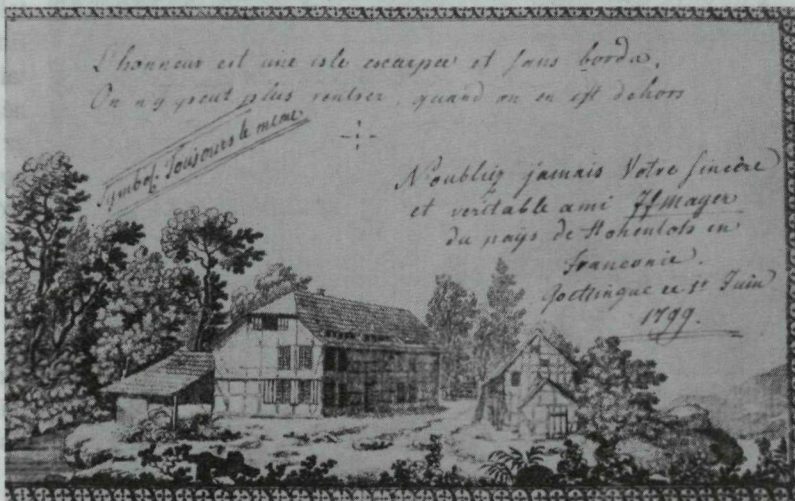 L'honneur est une isle escarpée et sans bords,
On n'y peut plus rentrer, quand on en est dehors
Symbol. Toujours le meme
N'oubliez jamais Votre sincère
et veritable ami JfMayer
du païs de Hohenlohe en
Franconie.
Goettingue ce 1r Juin
1799.